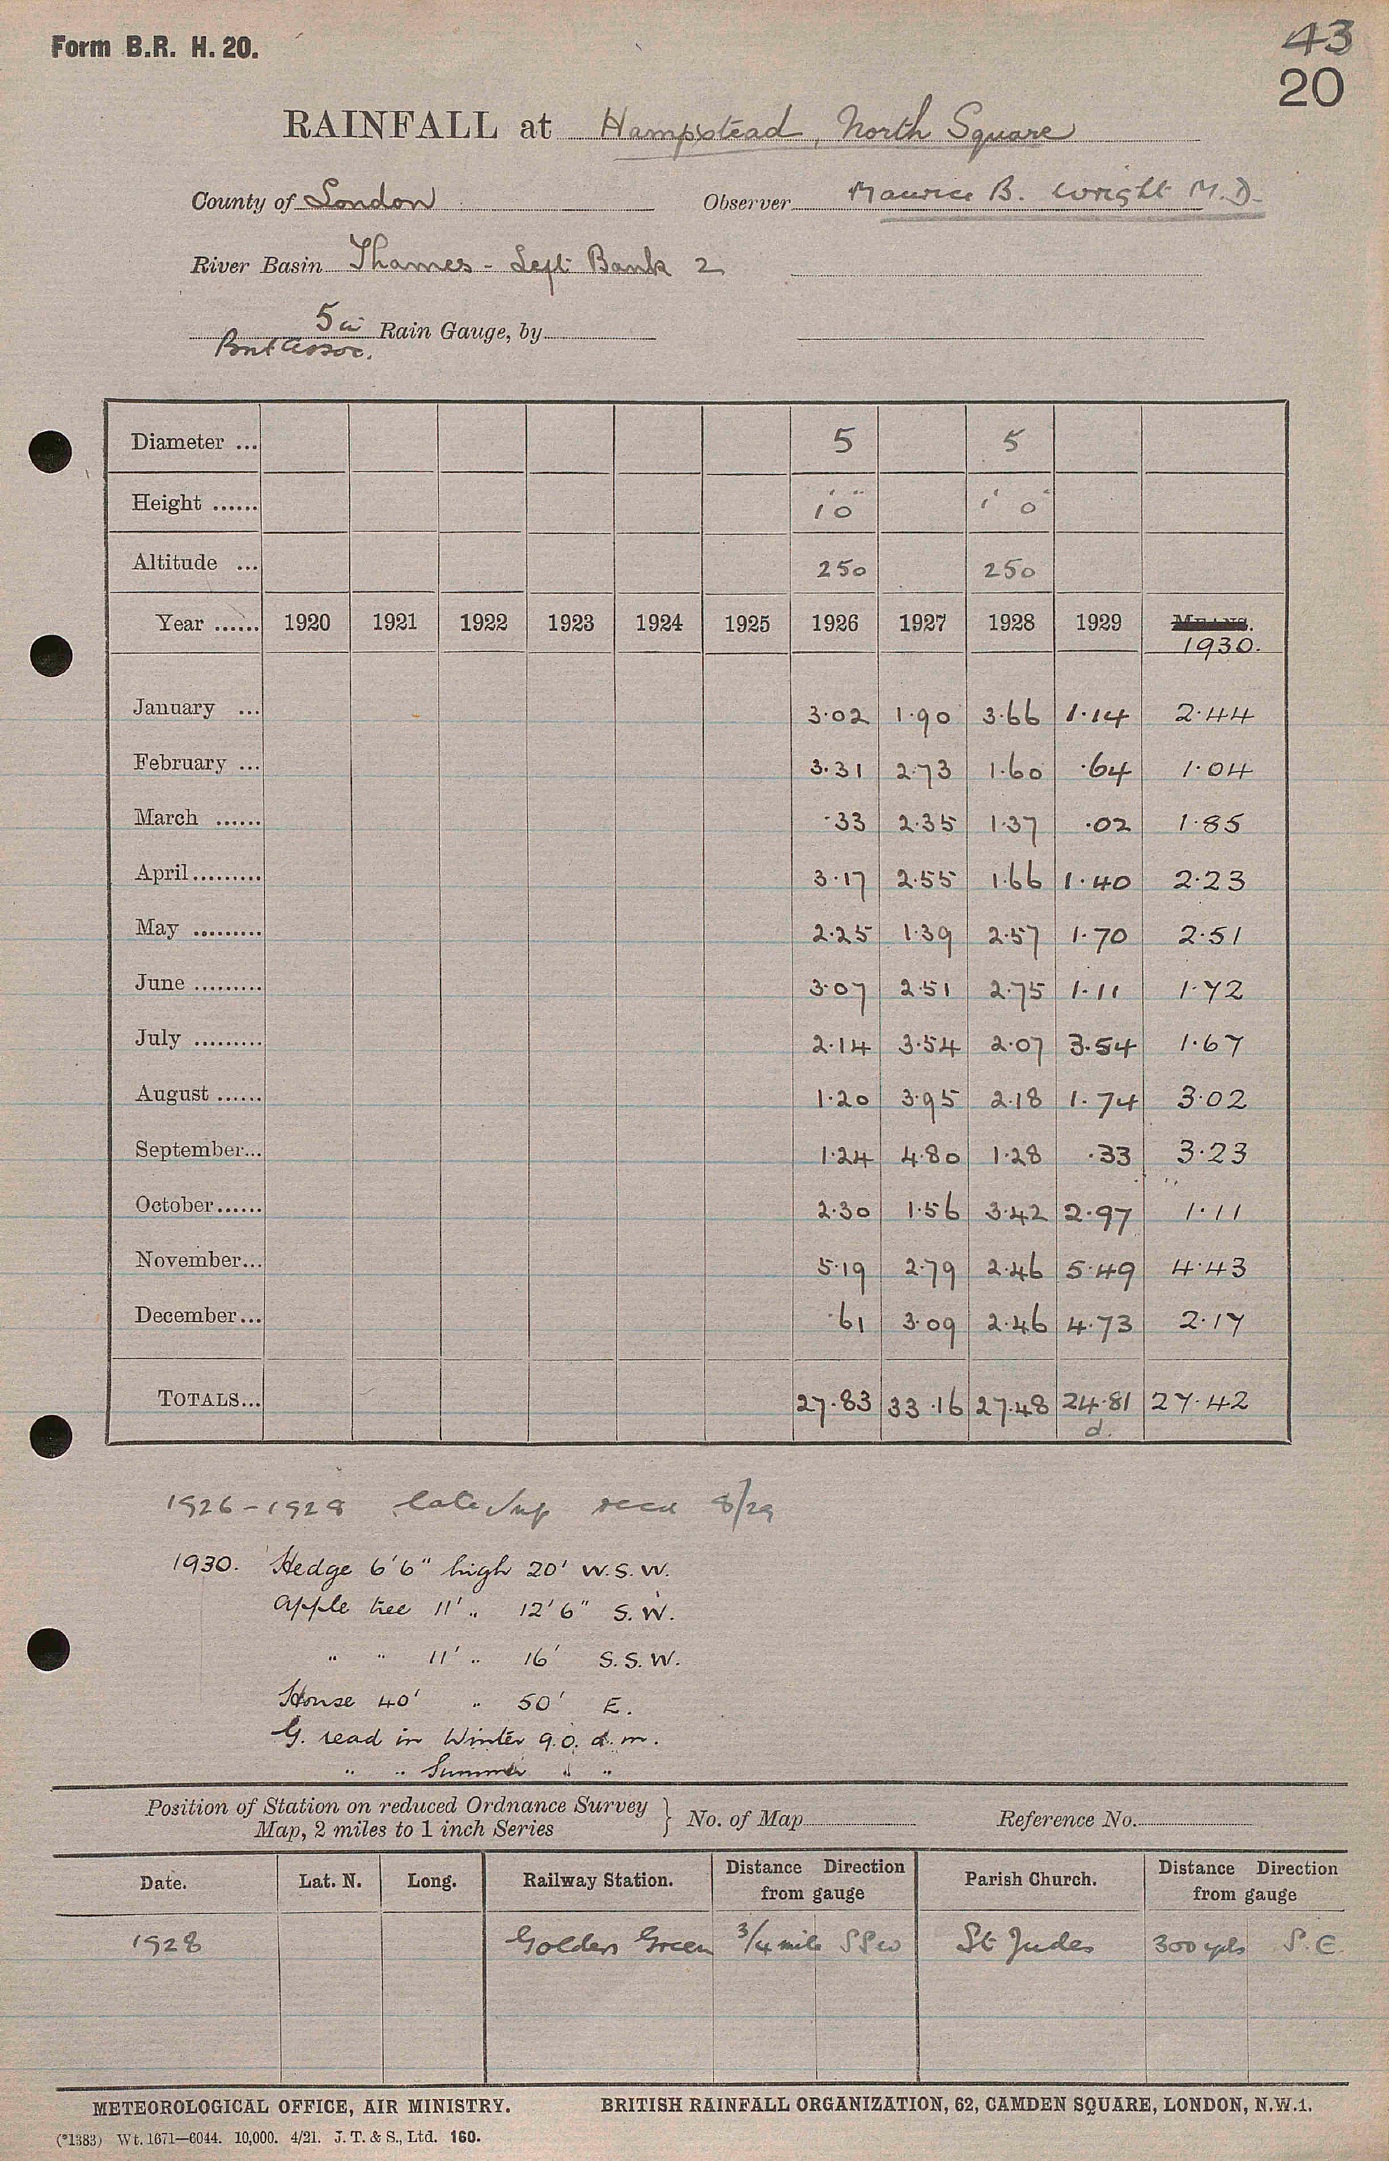 Form B.R. H. 20.
43
20
RAINFALL at Hampstead, North Square
County of London Observer Maurice B. Wright M.D.
River Basin Thames - Left Bank 2
5 in Rain Gauge, by
Brit Assoc.
Diameter ... 5 5
Height ...... 1' 0" 1' 0"
Altitude ... 250 250
Year ...... 1920 1921 1922 1923 1924 1925 1926 1927 1928 1929 MEANS.
1930.
January ... 3.02 1.90 3.66 1.14 2.44
February ... 3.31 2.73 1.60 .64 1.04
March ...... .33 2.35 1.37 .02 1.85
April ......... 3.17 2.55 1.66 1.40 2.23
May ......... 2.25 1.39 2.57 1.70 2.51
June ......... 3.07 2.51 2.75 1.11 1.72
July ......... 2.14 3.54 2.07 3.54 1.67
August ...... 1.20 3.95 2.18 1.74 3.02
September... 1.24 4.80 1.28 .33 3.23
October ...... 2.30 1.56 3.42 2.97 1.11
November... 5.19 2.79 2.46 5.49 4.43
December... .61 3.09 2.46 4.73 2.17
TOTALS... 27.83 33.16 27.48 24.81 27.42
d.
1926-1928 late recd 8/29
1930. Hedge 6'6" high 20' W.S.W.
Apple tree 11' " 12'6" S.W.
" " 11' " 16' S.S.W.
House 40' " 50' E.
G. read in Winter 9.0. a.m.
" " Summer " "
Position of Station on reduced Ordnance Survey
Map, 2 miles to 1 inch Series } No. of Map Reference No.
Date. Lat. N. Long. Railway Station. Distance Direction from gauge Parish Church. Distance Direction from gauge
1928 Golders Green 3/4 mile SSW St Judes 300 yds S.E.
METEOROLOGICAL OFFICE, AIR MINISTRY. BRITISH RAINFALL ORGANIZATION, 62, CAMDEN SQUARE, LONDON, N.W.1.
(*1383) Wt. 1671—6044. 10,000. 4/21. J. T. & S., Ltd. 160.